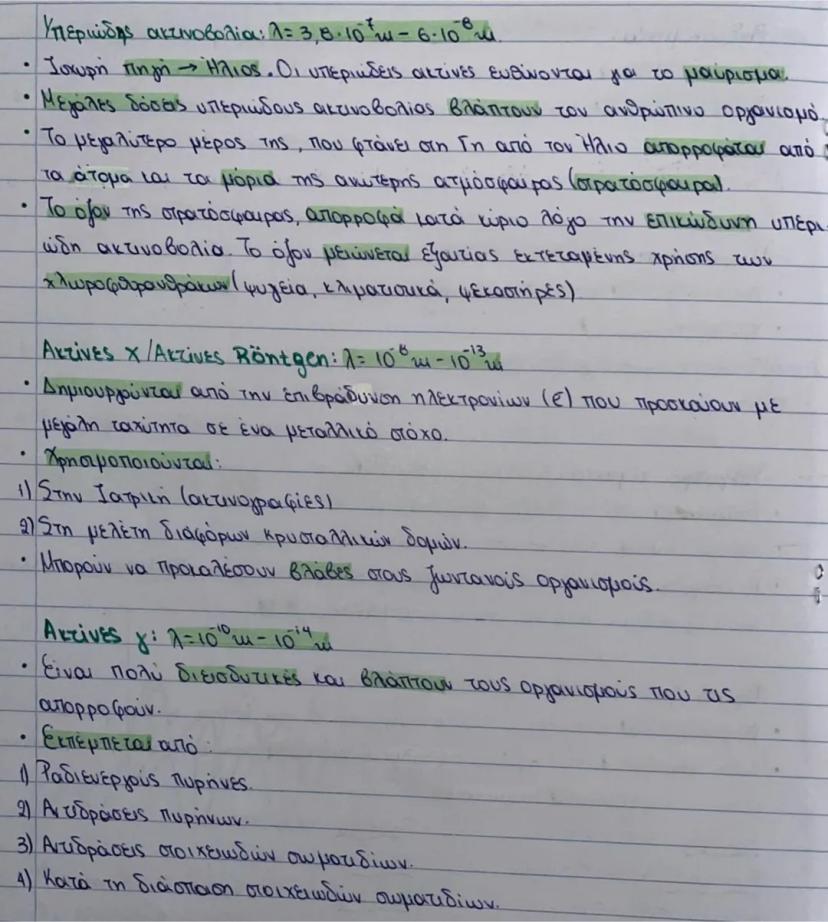 Υπεριώδης ακτινοβολία: λ= 3,8·10⁻⁷m – 6·10⁻⁸m.
• Ισχυρή πηγή → Ήλιος. Οι υπεριώδεις ακτίνες ευθίνονται για το μαύρισμα.
• Μεγάλες δόσεις υπεριώδους ακτινοβολίας βλάπτουν τον ανθρώπινο οργανισμό.
• Το μεγαλύτερο μέρος της, που φτάνει στη Γη από τον Ήλιο απορροφάται από
τα άτομα και τα μόρια της ανώτερης ατμόσφαιρας (στρατόσφαιρα).
• Το όζον της στρατόσφαιρας, απορροφά κατά κύριο λόγο την επικίνδυνη υπερι
ώδη ακτινοβολία. Το όζον μειώνεται εξαιτίας εκτεταμένης χρήσης των
χλωροφθορανθράκων (ψυγεία, κλιματιστικά, ψεκαστήρες)
Ακτίνες Χ/Ακτίνες Röntgen: λ= 10⁻⁸m – 10⁻¹³m
• Δημιουργούνται από την επιβράδυνση ηλεκτρονίων (e) που προσκρούουν με
μεγάλη ταχύτητα σε ένα μεταλλικό στόχο.
• Χρησιμοποιούνται:
1) Στην Ιατρική (ακτινογραφίες)
2) Στη μελέτη διαφόρων κρυσταλλικών δομών.
• Μπορούν να προκαλέσουν βλάβες στους ζωντανούς οργανισμούς.
Ακτίνες γ: λ=10⁻¹⁰m – 10⁻¹⁴m
• Είναι πολύ διεισδυτικές και βλάπτουν τους οργανισμούς που τις
απορροφούν.
• Εκπέμπεται από:
1) Ραδιενεργούς πυρήνες.
2) Αντιδράσεις πυρήνων.
3) Αντιδράσεις στοιχειωδών σωματιδίων.
4) Κατά τη διάσπαση στοιχειωδών σωματιδίων.